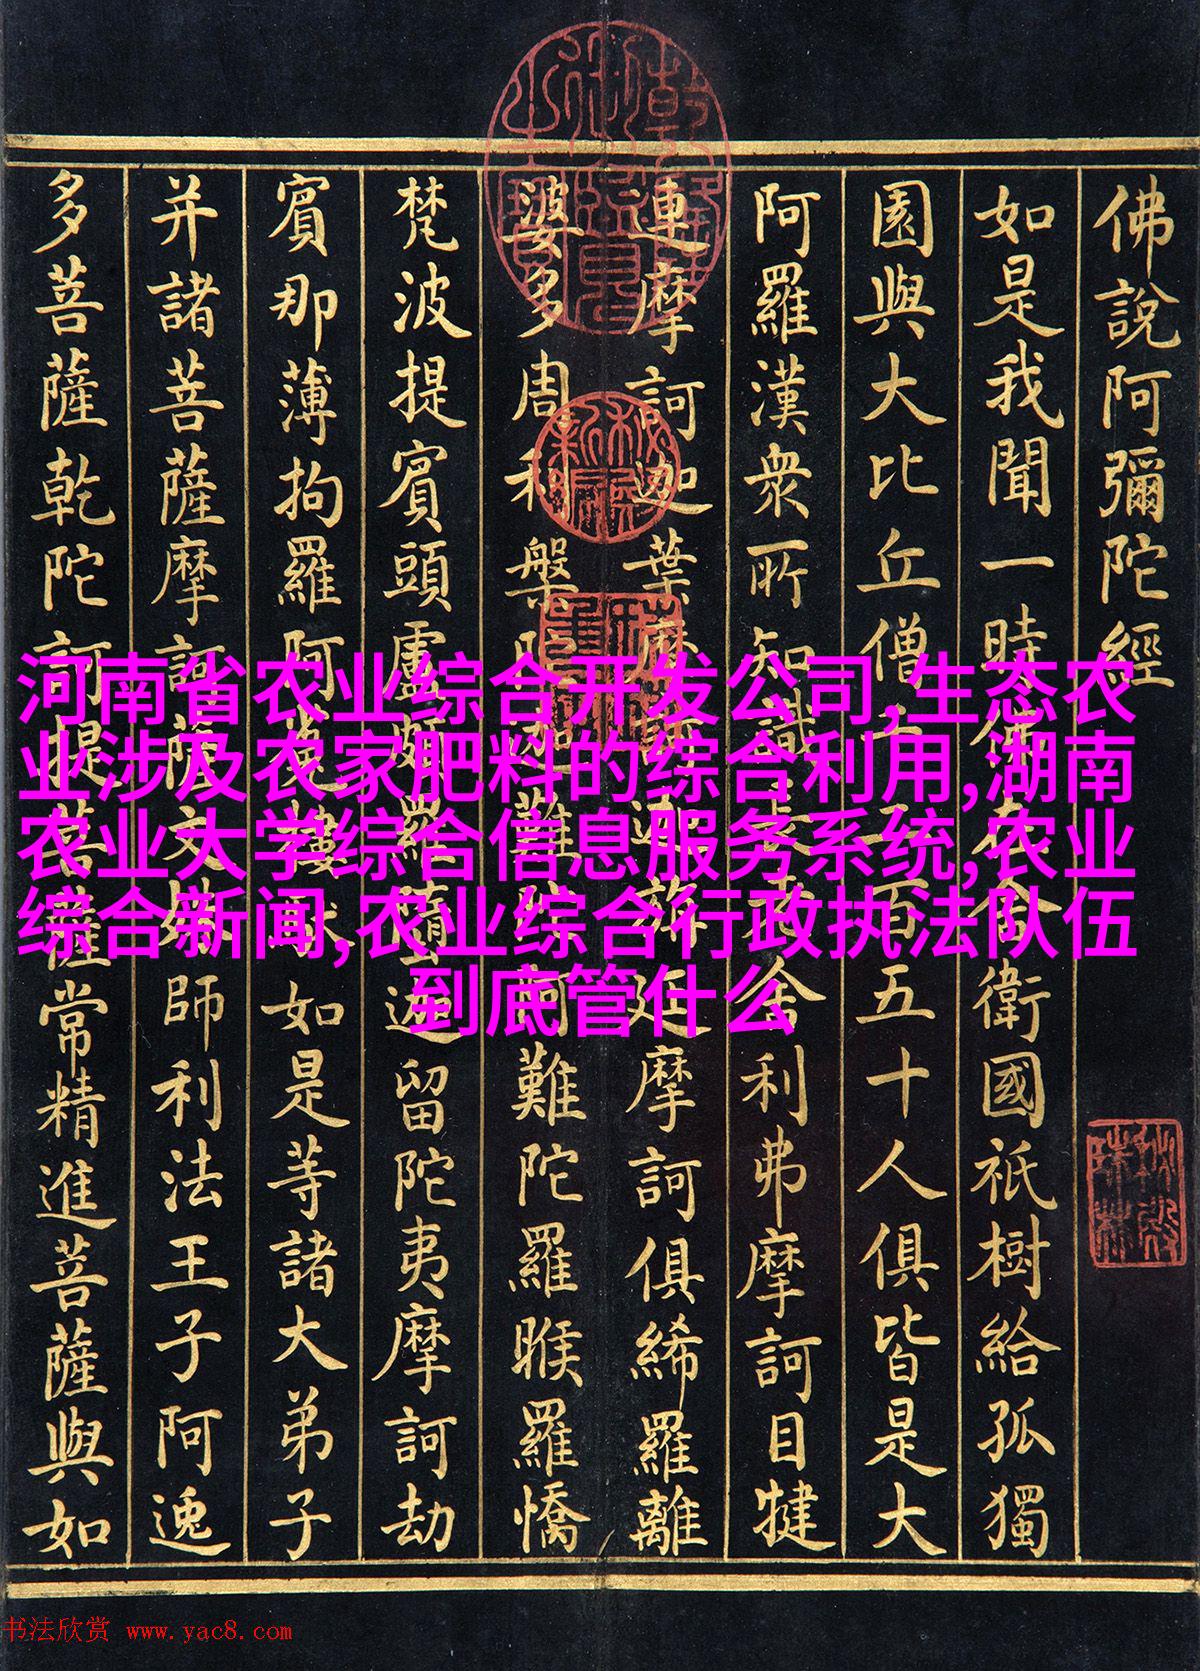 佛說阿彌陀經
如是我聞一時佛在舍衛國祇樹給孤獨
園與大比丘僧千二百五十人俱皆是大
阿羅漢衆所知識長老舍利弗摩訶目犍
連摩訶迦葉摩訶迦旃延摩訶俱絺羅離
婆多周利槃陀伽難陀阿難陀羅睺羅憍
梵波提賓頭盧頗羅墮迦留陀夷摩訶劫
賓那薄拘羅阿樓馱如是等諸大弟子
并諸菩薩摩訶薩文殊師利法王子阿逸
多菩薩乾陀訶提菩薩常精進菩薩與如
河南省农业综合开发公司,生态农
业涉及农家肥料的综合利用,湖南
农业大学综合信息服务系统,农业
综合新闻,农业综合行政执法队伍
到底管什么
书法欣赏 www.yac8.com